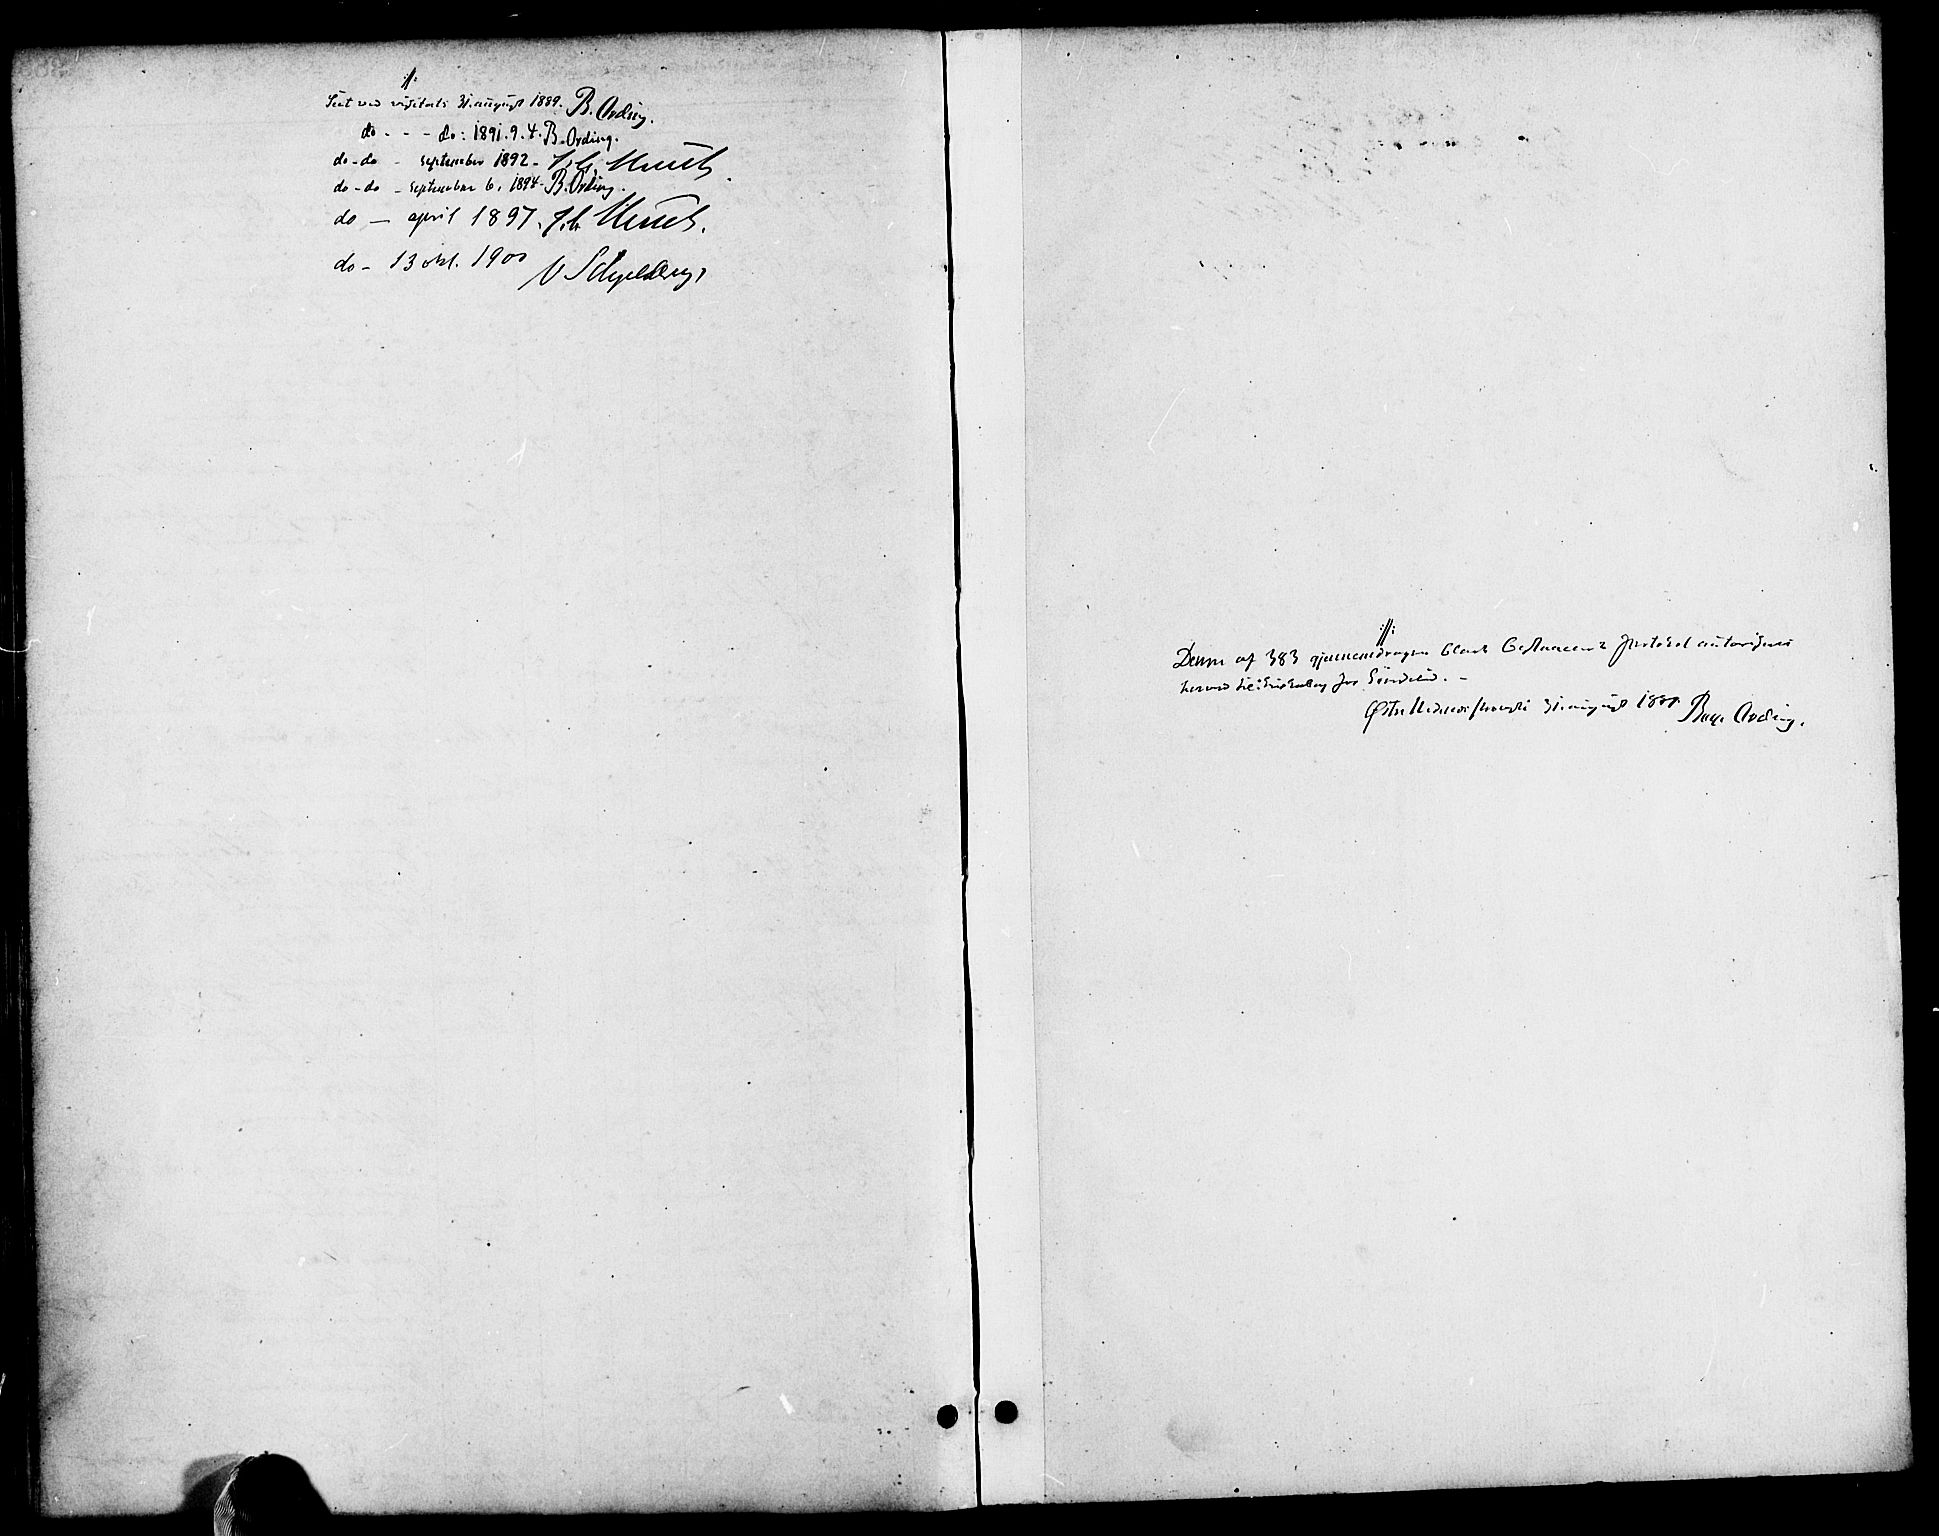 :/:
Seet ved visitats 31. august 1889. B. Ording.
do - - - do: 1891. 9. 4. B. Ording.
do - do - september 1892 -
do - do - september 6. 1894 - B. Ording.
do — april 1897.
do - 13 okt. 1900
:/:
Denne af 383 gjennemdragne blade bestaaende protokol autoriseres
herved til: for Søndeled. -
Østre Nedenes provsti 31. august 1888. Boye Ording.